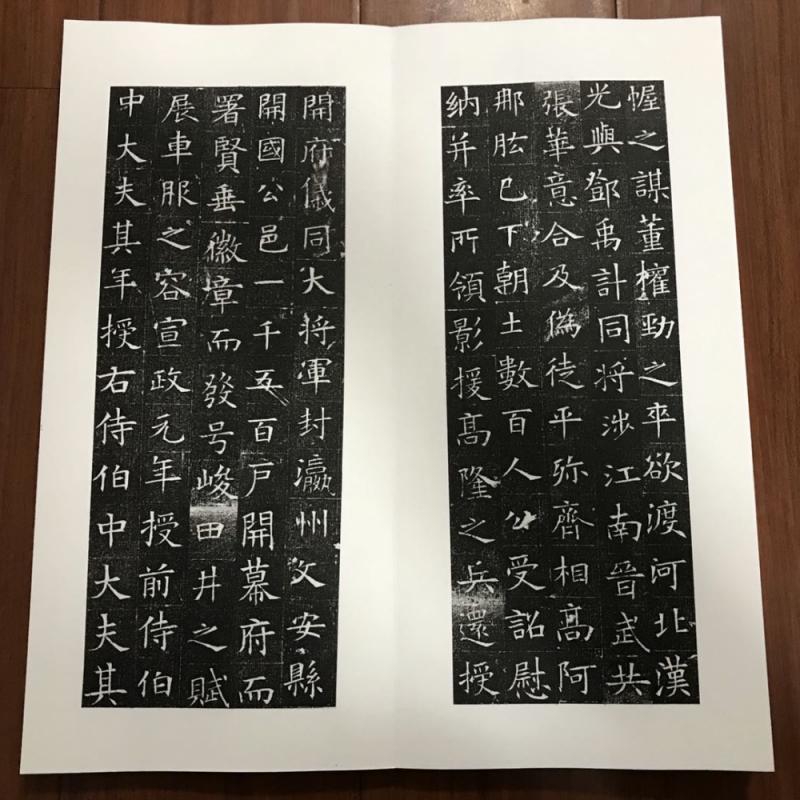 幄之謀董櫂勁之卒欲渡河北漢
光與鄧禹計同将涉江南晉武共
張華意合及僞徒平弥齊相高阿
那肱已下朝士數百人公受詔慰
納并率所領影援高隆之兵還授
開府儀同大将軍封瀛州文安縣
開國公邑一千五百戶開幕府而
署賢垂徽墇而發号峻田井之賦
展車服之容宣政元年授前侍伯
中大夫其年授右侍伯中大夫其